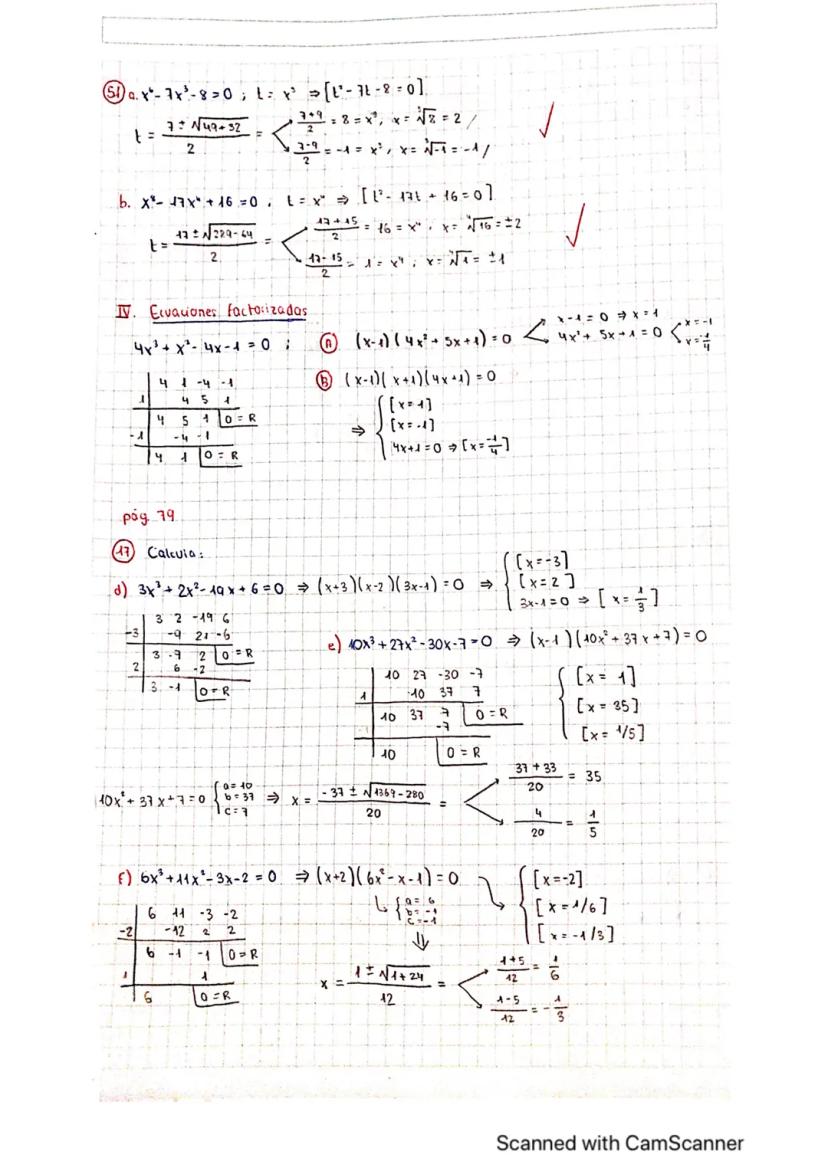 51 a. x⁶-7x³-8=0 ; t = x³ ⇒ [t²-7t-8=0]
t = 7±√49+32 / 2 = 7+9/2 = 8 = x³, x = ³√8 = 2 /
7-9/2 = -1 = x³, x = ³√-1 = -1 /
b. x⁸-17x⁴+16=0 . t = x⁴ ⇒ [t²-17t+16=0]
t = 17±√289-64 / 2 = 17+15/2 = 16 = x⁴, x = ⁴√16 = ±2
17-15/2 = 1 = x⁴, x = ⁴√1 = ±1
IV. Ecuaciones factorizadas
4x³+x²-4x-1=0 ; A (x-1)(4x²+5x+1)=0 x-1=0 ⇒ x=1
4x²+5x+1=0 x=-1
x=-1/4
B (x-1)(x+1)(4x+1)=0
4 1 -4 -1
1 4 5 1
4 5 1 0=R
-1 -4 -1
4 1 0=R
⇒ [x=1]
[x=-1]
4x+1=0 ⇒ [x=-1/4]
pág. 79
17 Calcula:
d) 3x³+2x²-19x+6=0 ⇒ (x+3)(x-2)(3x-1)=0 ⇒ [x=-3]
[x=2]
3x-1=0 ⇒ [x=1/3]
3 2 -19 6
-3 -9 21 -6
3 -7 2 0=R
2 6 -2
3 -1 0=R
e) 10x³+27x²-30x-7=0 ⇒ (x-1)(10x²+37x+7)=0
10 27 -30 -7
1 10 37 7
10 37 7 0=R
-7
10 0=R
[x=1]
[x=35]
[x=1/5]
10x²+37x+7=0 a=10
b=37
c=7
⇒ x = -37±√1369-280 / 20 = 37+33/20 = 35
4/20 = 1/5
f) 6x³+11x²-3x-2=0 ⇒ (x+2)(6x²-x-1)=0 [x=-2]
[x=1/6]
[x=-1/3]
a=6
b=-1
c=-1
6 11 -3 -2
-2 -12 2 2
6 -1 -1 0=R
1 1
6 0=R
x = 1±√1+24 / 12 = 1+5/12 = 1/6
1-5/12 = -1/3
Scanned with CamScanner